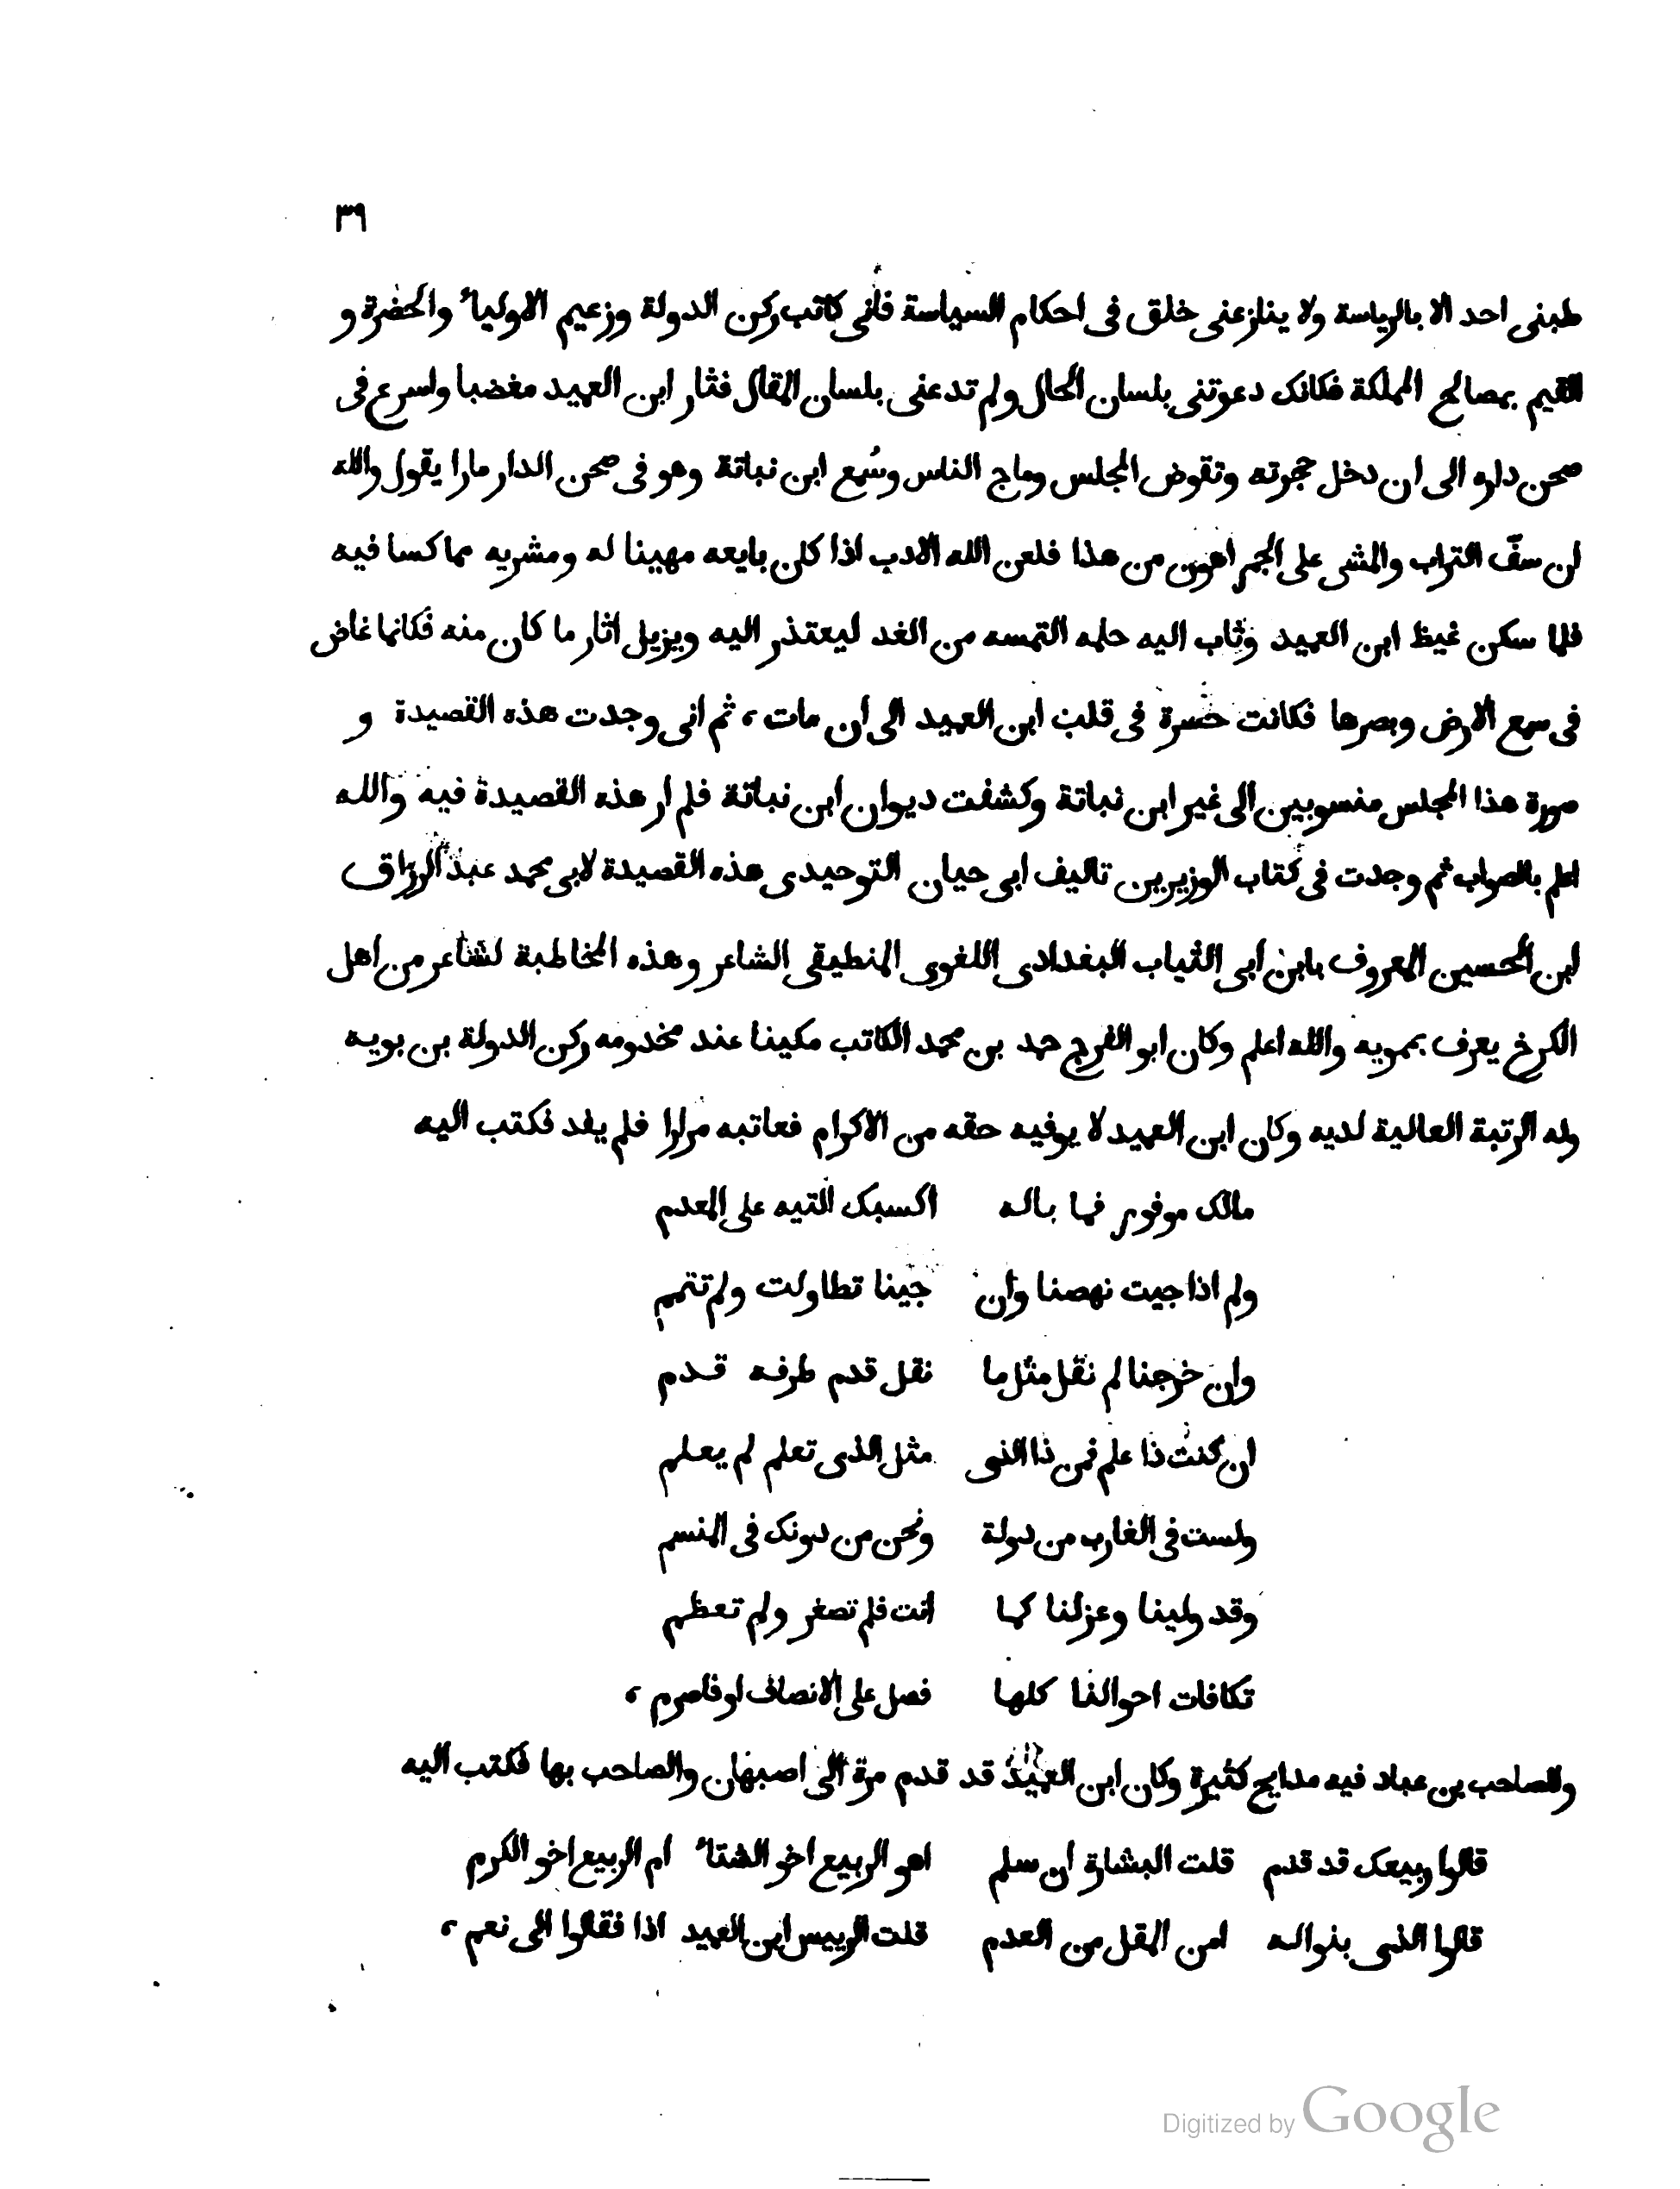 ٣٩
طبنى احد الا بالرياسة ولا ينازعنى خلق فى احكام السياسة فانى كاتب ركن الدولة وزعيم الاوليآء والحضرة و
القيم بمصالح المملكة فكانك دعوتنى بلسان الحال ولم تدعنى بلسان المقال فثار ابن العميد مغضبا واسرع فى
صحن داره الى ان دخل حجرته وتقوض المجلس وماج الناس وسُمع ابن نباتة وهو فى صحن الدار مارا يقول والله
ان سفّ التراب والمشى على الجمر اهون من هذا فلعن الله الادب اذا كان بايعه مهينا له ومشريه مماكسا فيه
فلما سكن غيظ ابن العميد وثاب اليه حلمه التمسه من الغد ليعتذر اليه ويزيل اثار ما كان منه فكانما غاض
فى سمع الارض وبصرها فكانت حسرة فى قلب ابن العميد الى ان مات، ثم انى وجدت هذه القصيدة و
صورة هذا المجلس منسوبين الى غير ابن نباتة وكشفت ديوان ابن نباتة فلم ار هذه القصيدة فيه والله
اعلم بالصواب ثم وجدت فى كتاب الوزيرين تاليف ابى حيان التوحيدى هذه القصيدة لابى محمد عبد الرزاق
ابن الحسين المعروف بابن ابى الثياب البغدادى اللغوى المنطيقى الشاعر وهذه المخاطبة لشاعر من اهل
الكرخ يعرف بمويه والله اعلم وكان ابو الفرج حمد بن محمد الكاتب مكينا عند مخدومه ركن الدولة بن بويه
وله الرتبة العالية لديه وكان ابن العميد لا يوفيه حقه من الاكرام فعاتبه مرارا فلم يفد فكتب اليه
مالك موفور فما باله اكسبك التيه على المعدم
ولم اذا جيت نهضنا وان جينا تطاولت ولم تتمم
وان خرجنا لم نقل مثل ما نقل قدم طرفه قدم
ان كنت ذا علم فمن ذا الذى مثل الذى تعلم لم يعلم
ولست فى الغارب من دولة ونحن من دونك فى المنسم
وقد ولينا وعزلنا كما انت فلم تصغر ولم تعظم
تكافات احوالنا كلها فصل على الانصاف او فاصرم،
وللصاحب بن عباد فيه مدايح كثيرة وكان ابن العميد قد قدم مرة الى اصبهان والصاحب بها فكتب اليه
قالوا ربيعك قد قدم قلت البشارة ان سلم اهو الربيع اخو الشتآء ام الربيع اخو الكرم
قالوا الذى بنواله امن المقل من العدم قلت الرييس ابن العميد اذا فقالوا لى نعم،
Digitized by Google